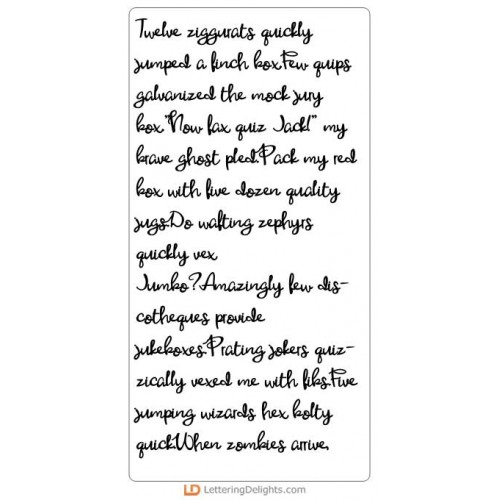 Twelve ziggurats quickly
jumped a finch box.Few quips
galvanized the mock jury
box."Now fax quiz Jack!" my
brave ghost pled.Pack my red
box with five dozen quality
jugs.Do wafting zephyrs
quickly vex
Jumbo?Amazingly few dis-
cotheques provide
jukeboxes.Prating jokers quiz-
zically vexed me with fibs.Five
jumping wizards hex bolty
quick.When zombies arrive,
LD LetteringDelights.com